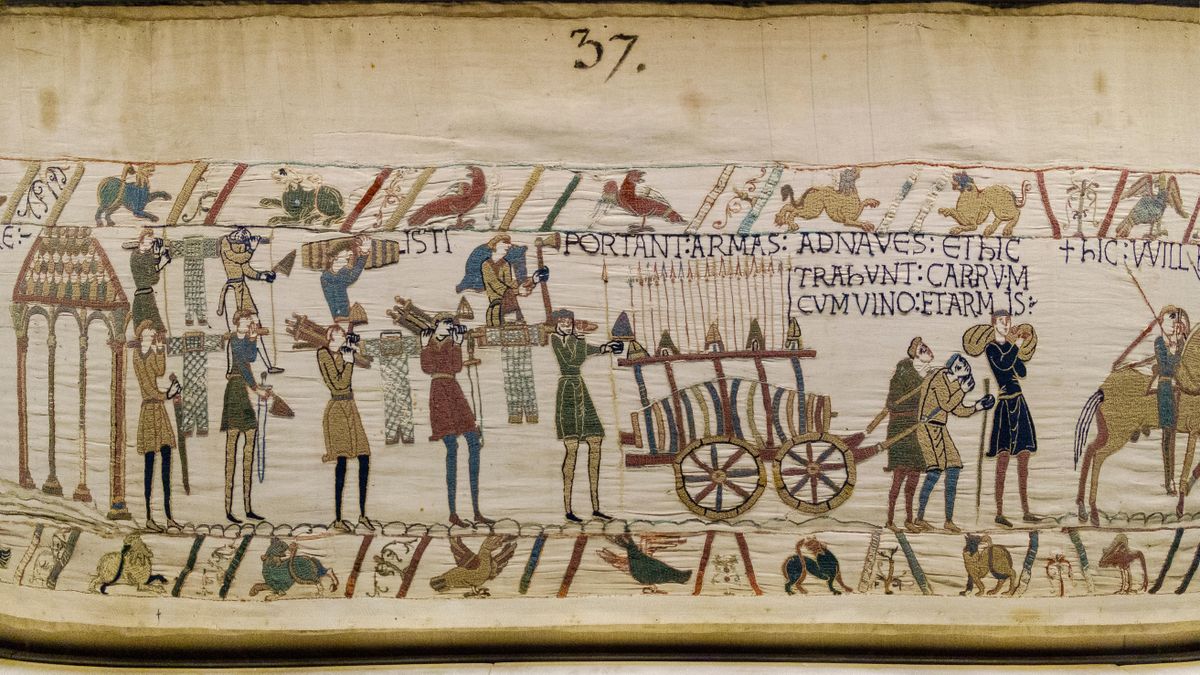 37.
E:
ISTI PORTANT: ARMAS: ADNAVES: EThIC
TRAhUNT: CARRVM
CVMVINO: ETARMIS:
†hIC: WILLV